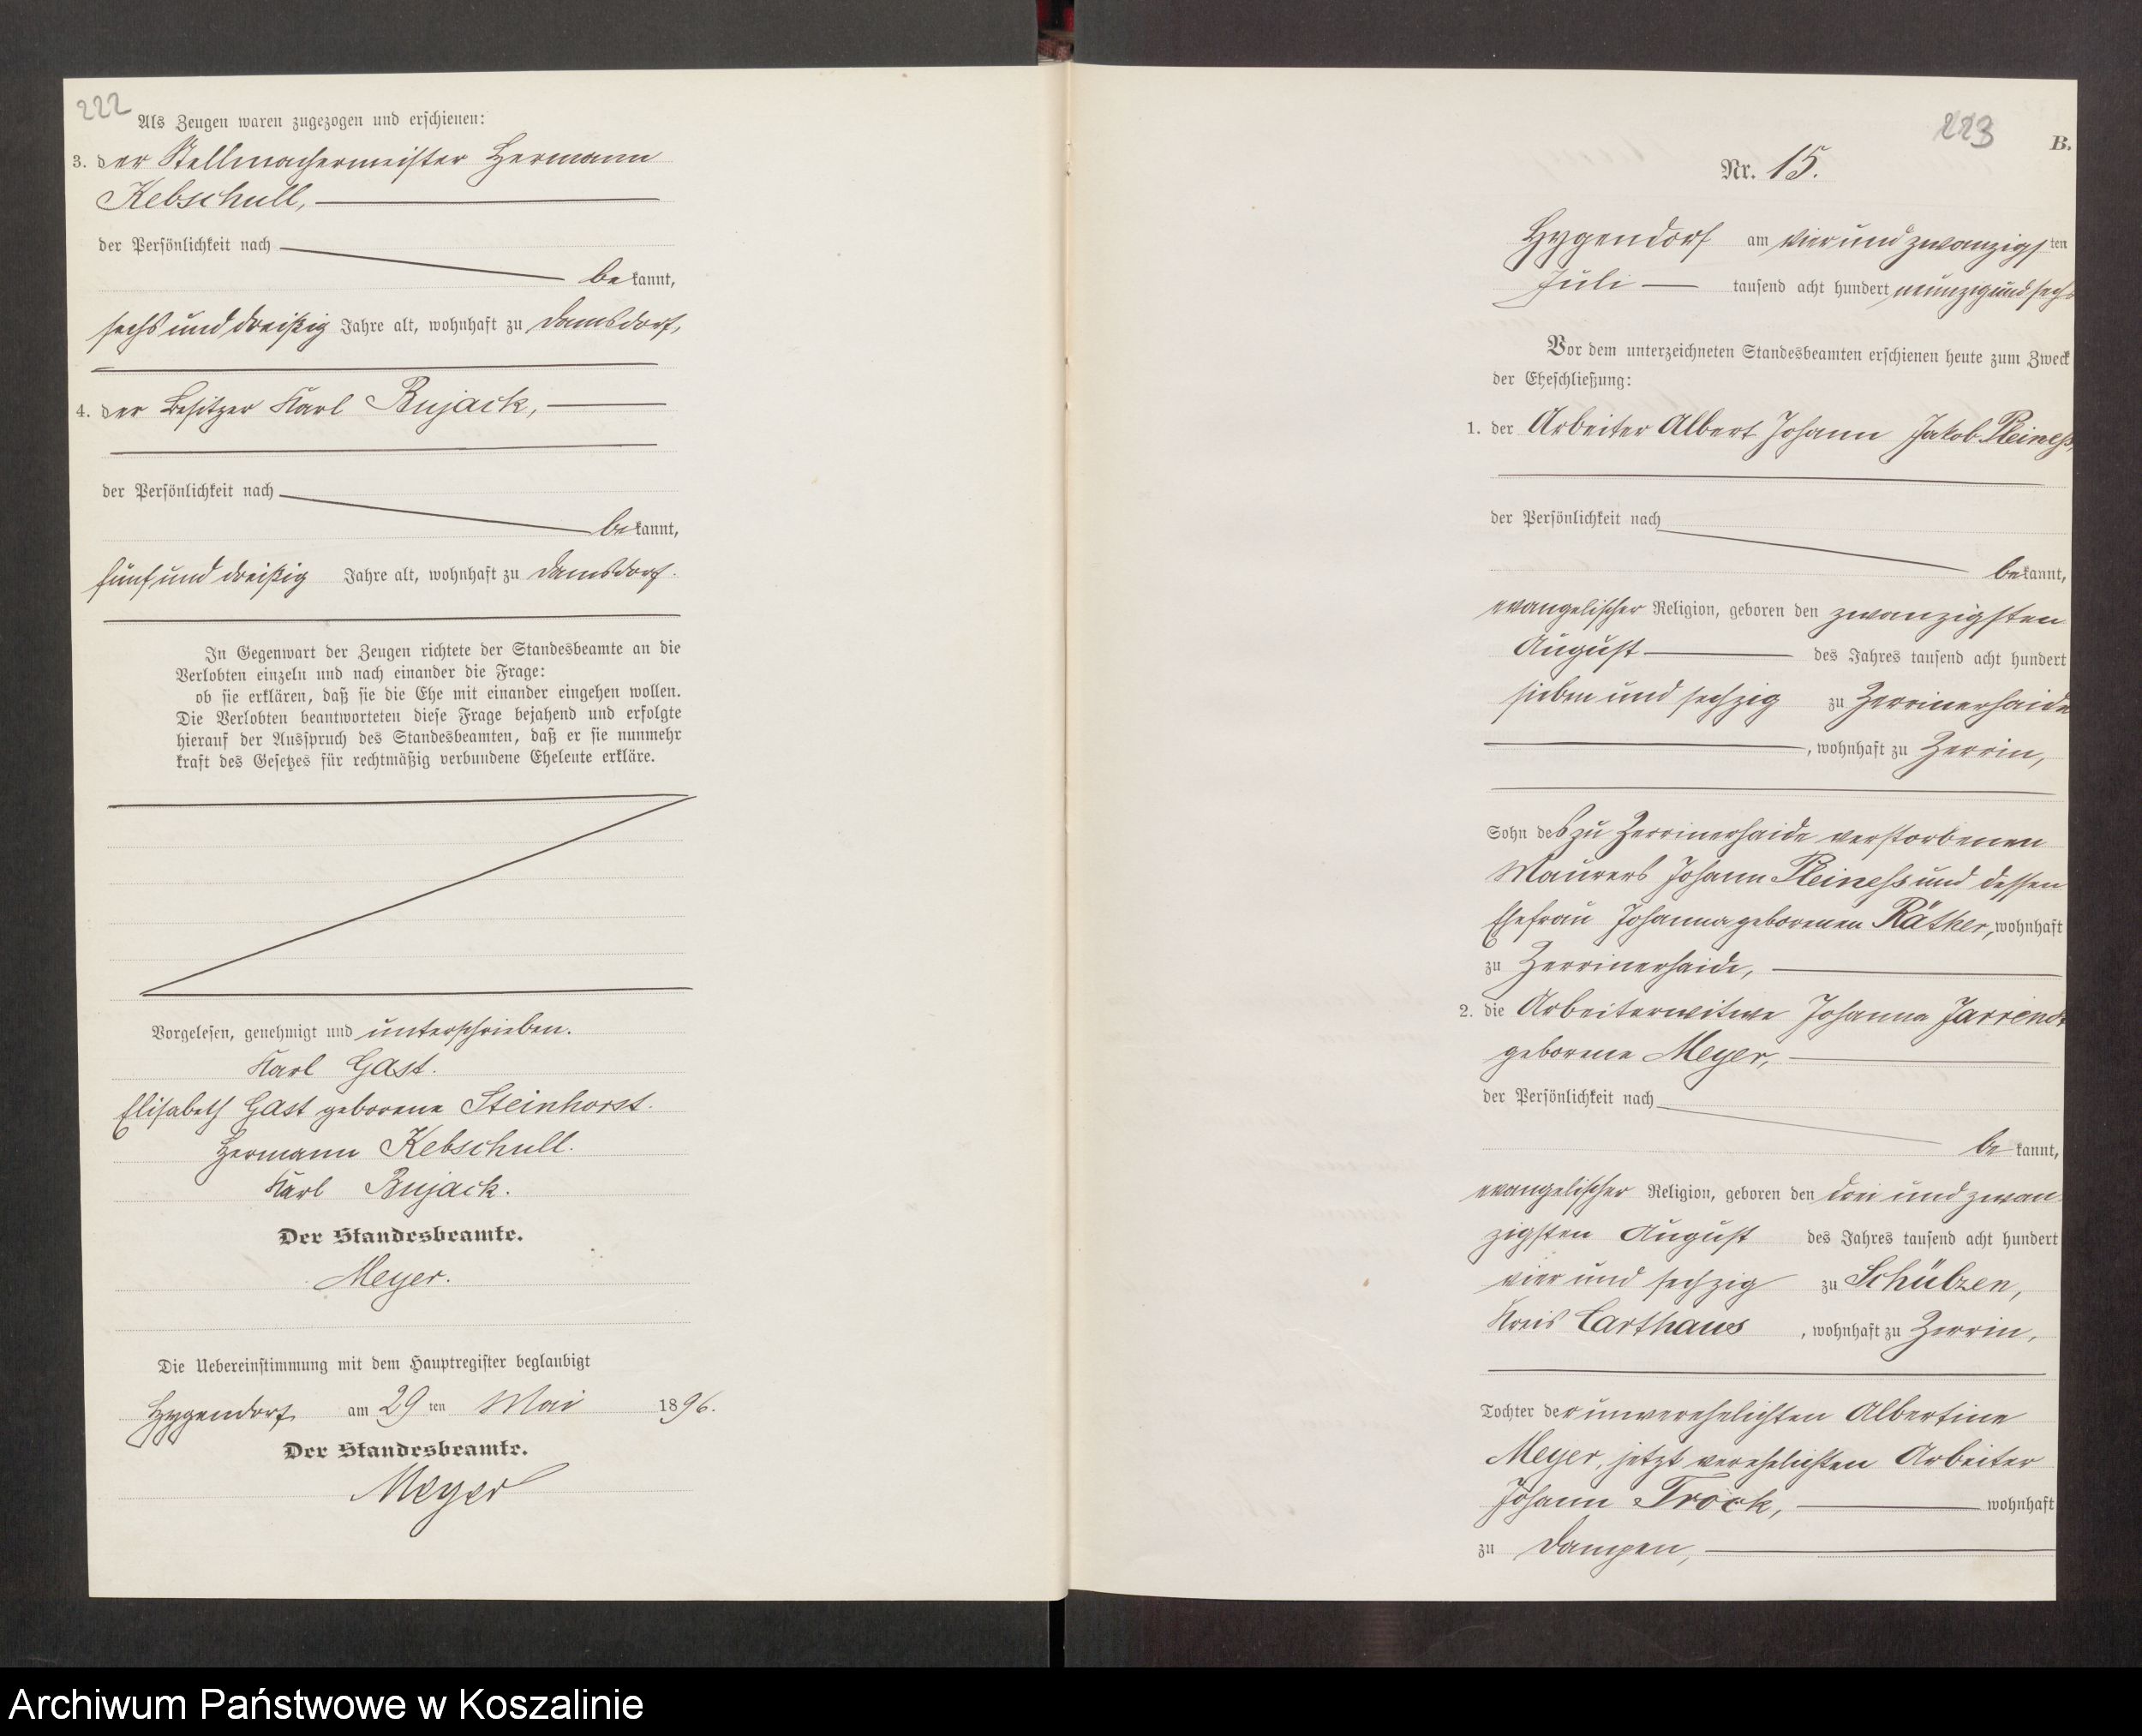 222
Als Zeugen waren zugezogen und erschienen:
3. der Stellmachermeister Hermann
Kebschull,
der Persönlichkeit nach
bekannt,
sechs und dreißig Jahre alt, wohnhaft zu Damsdorf,
4. der Besitzer Karl Bujack,
der Persönlichkeit nach
bekannt,
fünf und dreißig Jahre alt, wohnhaft zu Damsdorf.
In Gegenwart der Zeugen richtete der Standesbeamte an die
Verlobten einzeln und nach einander die Frage:
ob sie erklären, daß sie die Ehe mit einander eingehen wollen.
Die Verlobten beantworteten diese Frage bejahend und erfolgte
hierauf der Ausspruch des Standesbeamten, daß er sie nunmehr
kraft des Gesetzes für rechtmäßig verbundene Eheleute erkläre.
Vorgelesen, genehmigt und unterschrieben.
Karl Gast.
Elisabeth Gast geborene Steinhorst.
Hermann Kebschull.
Karl Bujack.
Der Standesbeamte.
Meyer.
Die Uebereinstimmung mit dem Hauptregister beglaubigt
Hygendorf am 29 ten Mai 1896.
Der Standesbeamte.
Meyer
223
B.
Nr. 15.
Hygendorf am vier und zwanzigsten
Juli tausend acht hundert neunzig und sechs
Vor dem unterzeichneten Standesbeamten erschienen heute zum Zweck
der Eheschließung:
1. der Arbeiter Albert Johann Jakob Pleineß,
der Persönlichkeit nach
bekannt,
evangelischer Religion, geboren den zwanzigsten
August des Jahres tausend acht hundert
sieben und sechzig zu Zerrinerhaide
, wohnhaft zu Zerrin,
Sohn des zu Zerrinerhaide verstorbenen
Maurers Johann Pleineß und dessen
Ehefrau Johanna geborenen Räther, wohnhaft
zu Zerrinerhaide,
2. die Arbeiterwitwe Johanna Jarrendt
geborene Meyer,
der Persönlichkeit nach
bekannt,
evangelischer Religion, geboren den drei und zwan-
zigsten August des Jahres tausend acht hundert
vier und sechzig zu Schülzen,
Kreis Carthaus, wohnhaft zu Zerrin,
Tochter der unverehelichten Albertine
Meyer, jetzt verehelichten Arbeiter
Johann Trock, wohnhaft
zu Dampen,
Archiwum Państwowe w Koszalinie